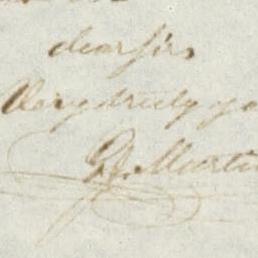 dear sir
Very truly yo
Martin